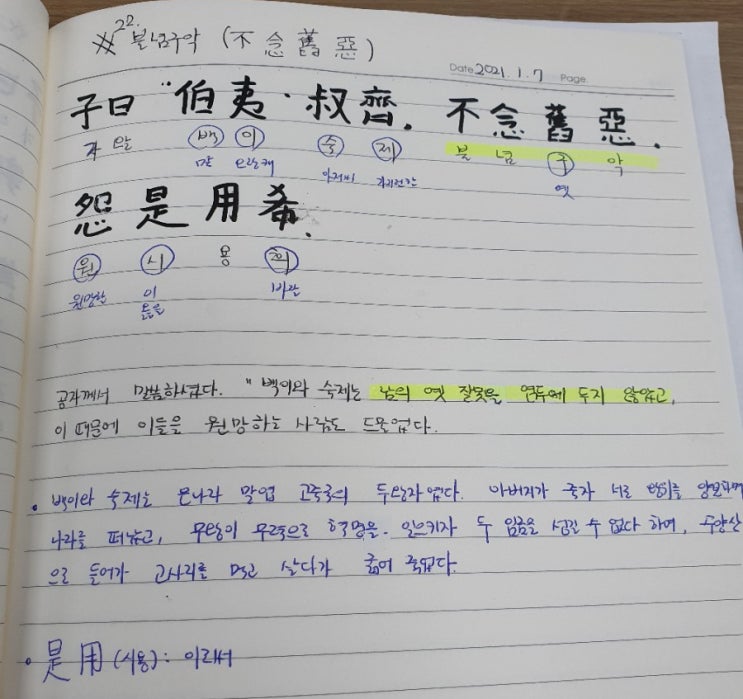 #22. 불념구악 (不念舊惡)
Date 2021. 1. 7 Page
子曰 "伯夷·叔齊. 不念舊惡.
자 왈 백 이 숙 제 불 념 구 악
맏 오랑캐 아저씨 가지런할 옛
怨是用希.
원 시 용 희
원망할 이 바랄
옳을
공자께서 말씀하셨다. "백이와 숙제는 남의 옛 잘못을 염두에 두지 않았고,
이 때문에 이들을 원망하는 사람도 드물었다.
• 백이와 숙제는 은나라 말엽 고죽국의 두 왕자였다. 아버지가 죽자 서로 왕위를 양보하며
나라를 떠났고, 무왕이 무력으로 혁명을 일으키자 두 임금을 섬길 수 없다 하여, 수양산
으로 들어가 고사리를 먹고 살다가 굶어 죽었다.
• 是用 (시용) : 이래서